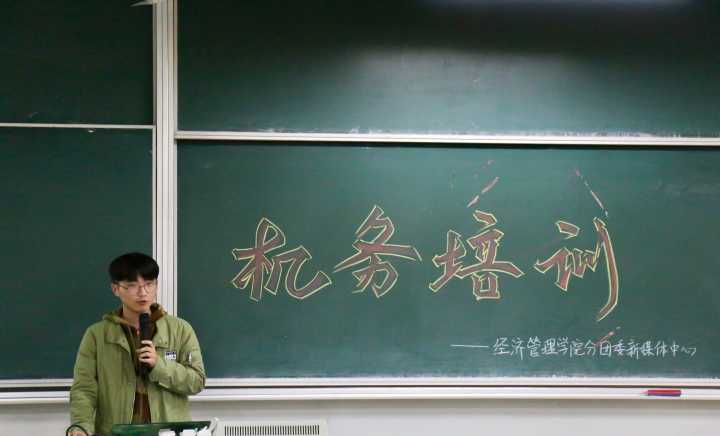 机务培训
——经济管理学院分团委新媒体中心